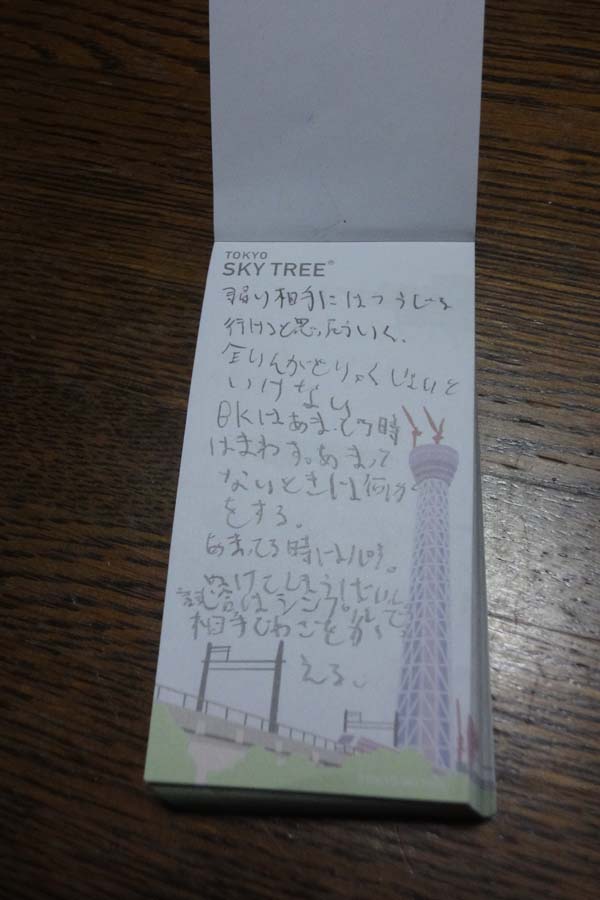 TOKYO
SKY TREE®
弱り相手にはつうじる
行けると思ったらいく、
全りんがどりゃくしないと
いけない
BKはあまってる時
はまわす。あまって
ないときは何か
をする。
あまってる時には
ぬけてしまう
試合はシンプル
相手
える。